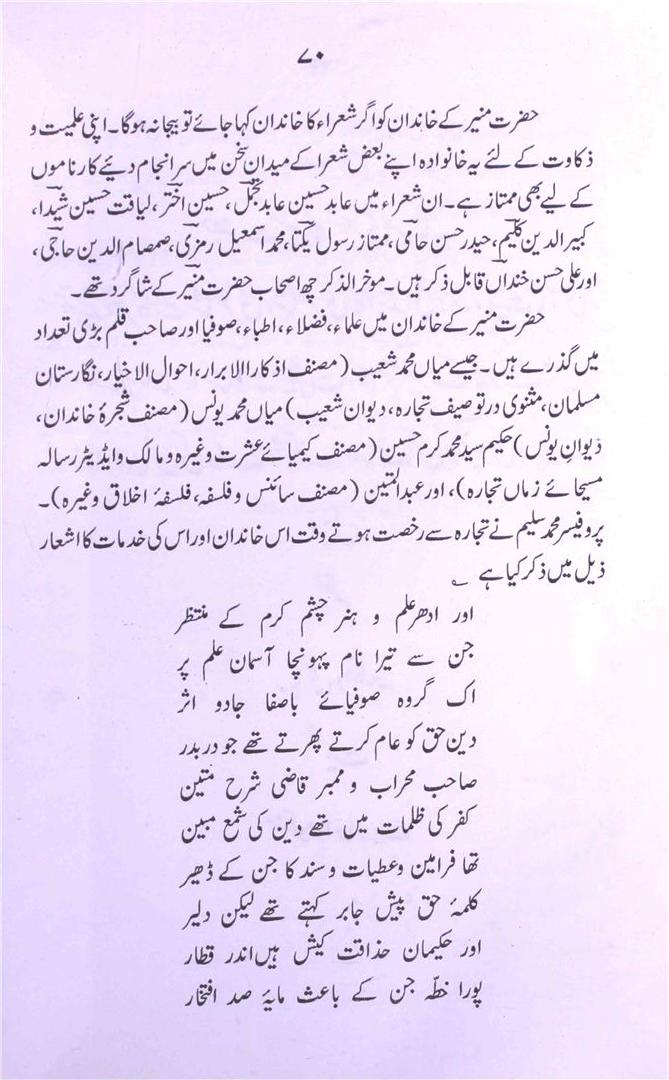 ۷۰
حضرت منیر کے خاندان کو اگر شعراء کا خاندان کہا جائے تو بیجا نہ ہوگا۔ اپنی علمیت و
ذکاوت کے لئے یہ خانوادہ اپنے بعض شعرا کے میدانِ سخن میں سرانجام دیئے کارناموں
کے لیے بھی ممتاز ہے۔ ان شعراء میں عابد حسین عابد تجمل، حسین اختر، لیاقت حسین شیدا،
کبیر الدین کلیم، حیدر حسن حامی، ممتاز رسول یکتا، محمد اسمعیل رمزی، صمصام الدین حاجی،
اور علی حسن خنداں قابل ذکر ہیں۔ موخر الذکر چھ اصحاب حضرت منیر کے شاگرد تھے۔
حضرت منیر کے خاندان میں علماء، فضلاء، اطباء، صوفیا اور صاحب قلم بڑی تعداد
میں گذرے ہیں۔ جیسے میاں محمد شعیب (مصنف اذکار الابرار، احوال الاخیار، نگارستان
مسلمان، مثنوی در توصیف تجارہ، دیوان شعیب) میاں محمد یونس (مصنف شجرۂ خاندان،
دیوانِ یونس) حکیم سید محمد کرم حسین (مصنف کیمیائے عشرت وغیرہ و مالک و ایڈیٹر رسالہ
مسیحائے زماں تجارہ)، اور عبدالمتین (مصنف سائنس و فلسفہ، فلسفۂ اخلاق وغیرہ)۔
پروفیسر محمد سلیم نے تجارہ سے رخصت ہوتے وقت اس خاندان اور اس کی خدمات کا اشعار
ذیل میں ذکر کیا ہے ؎
اور ادھر علم و ہنر چشم کرم کے منتظر
جن سے تیرا نام پہونچا آسمان علم پر
اک گروہ صوفیائے باصفا جادو اثر
دین حق کو عام کرتے پھرتے تھے جو در بدر
صاحب محراب و ممبر قاضی شرح متین
کفر کی ظلمات میں تھے دین کی شمع مبین
تھا فرامین و عطیات و سند کا جن کے ڈھیر
کلمۂ حق پیش جابر کہتے تھے لیکن دلیر
اور حکیمان حذاقت کیش ہیں اندر قطار
پورا خطّہ جن کے باعث مایۂ صد افتخار